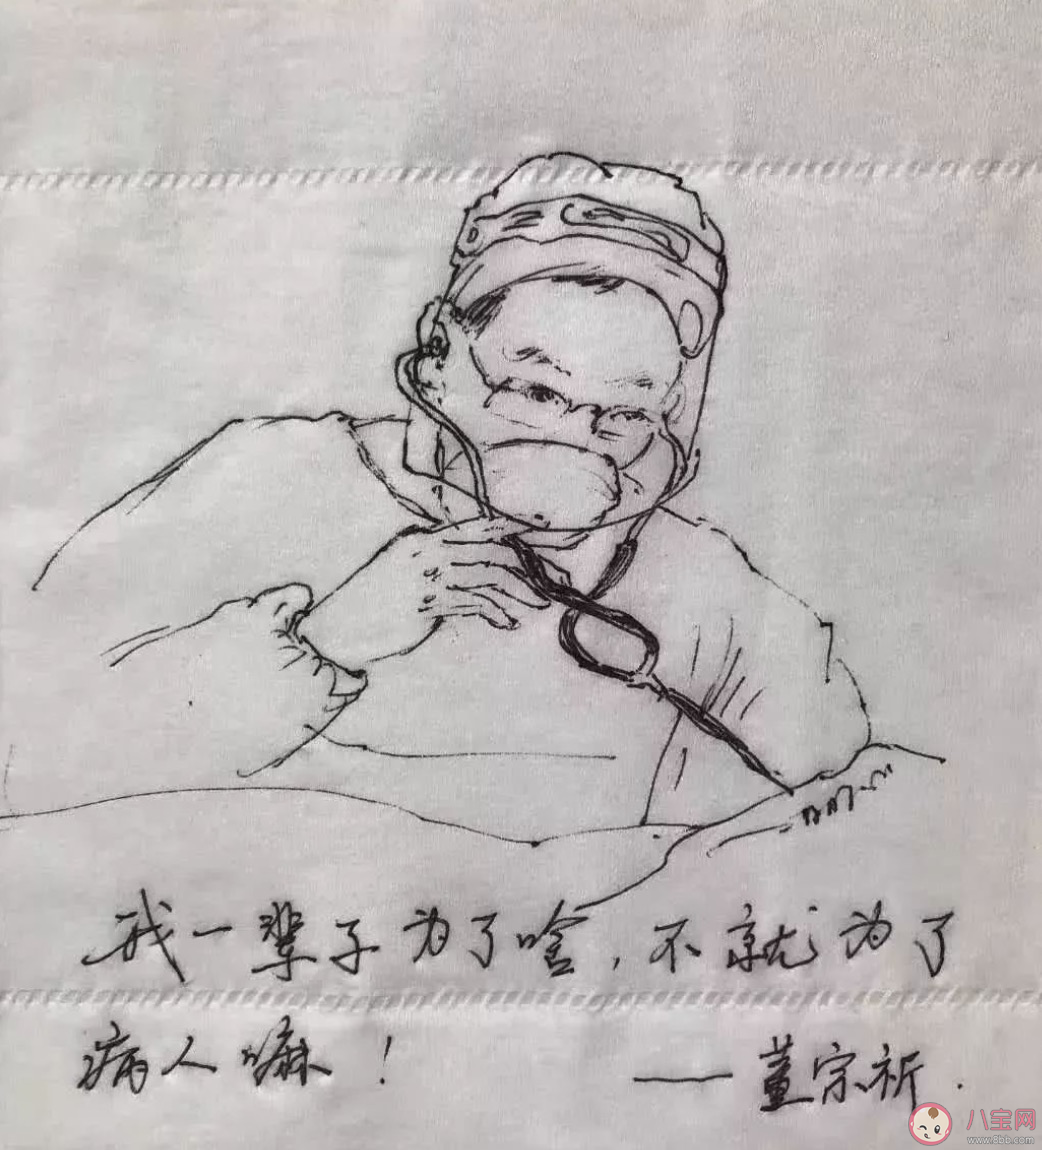 我一辈子为了啥，不就为了
病人嘛！ ——董宗祈.
八宝网
www.8bb.com